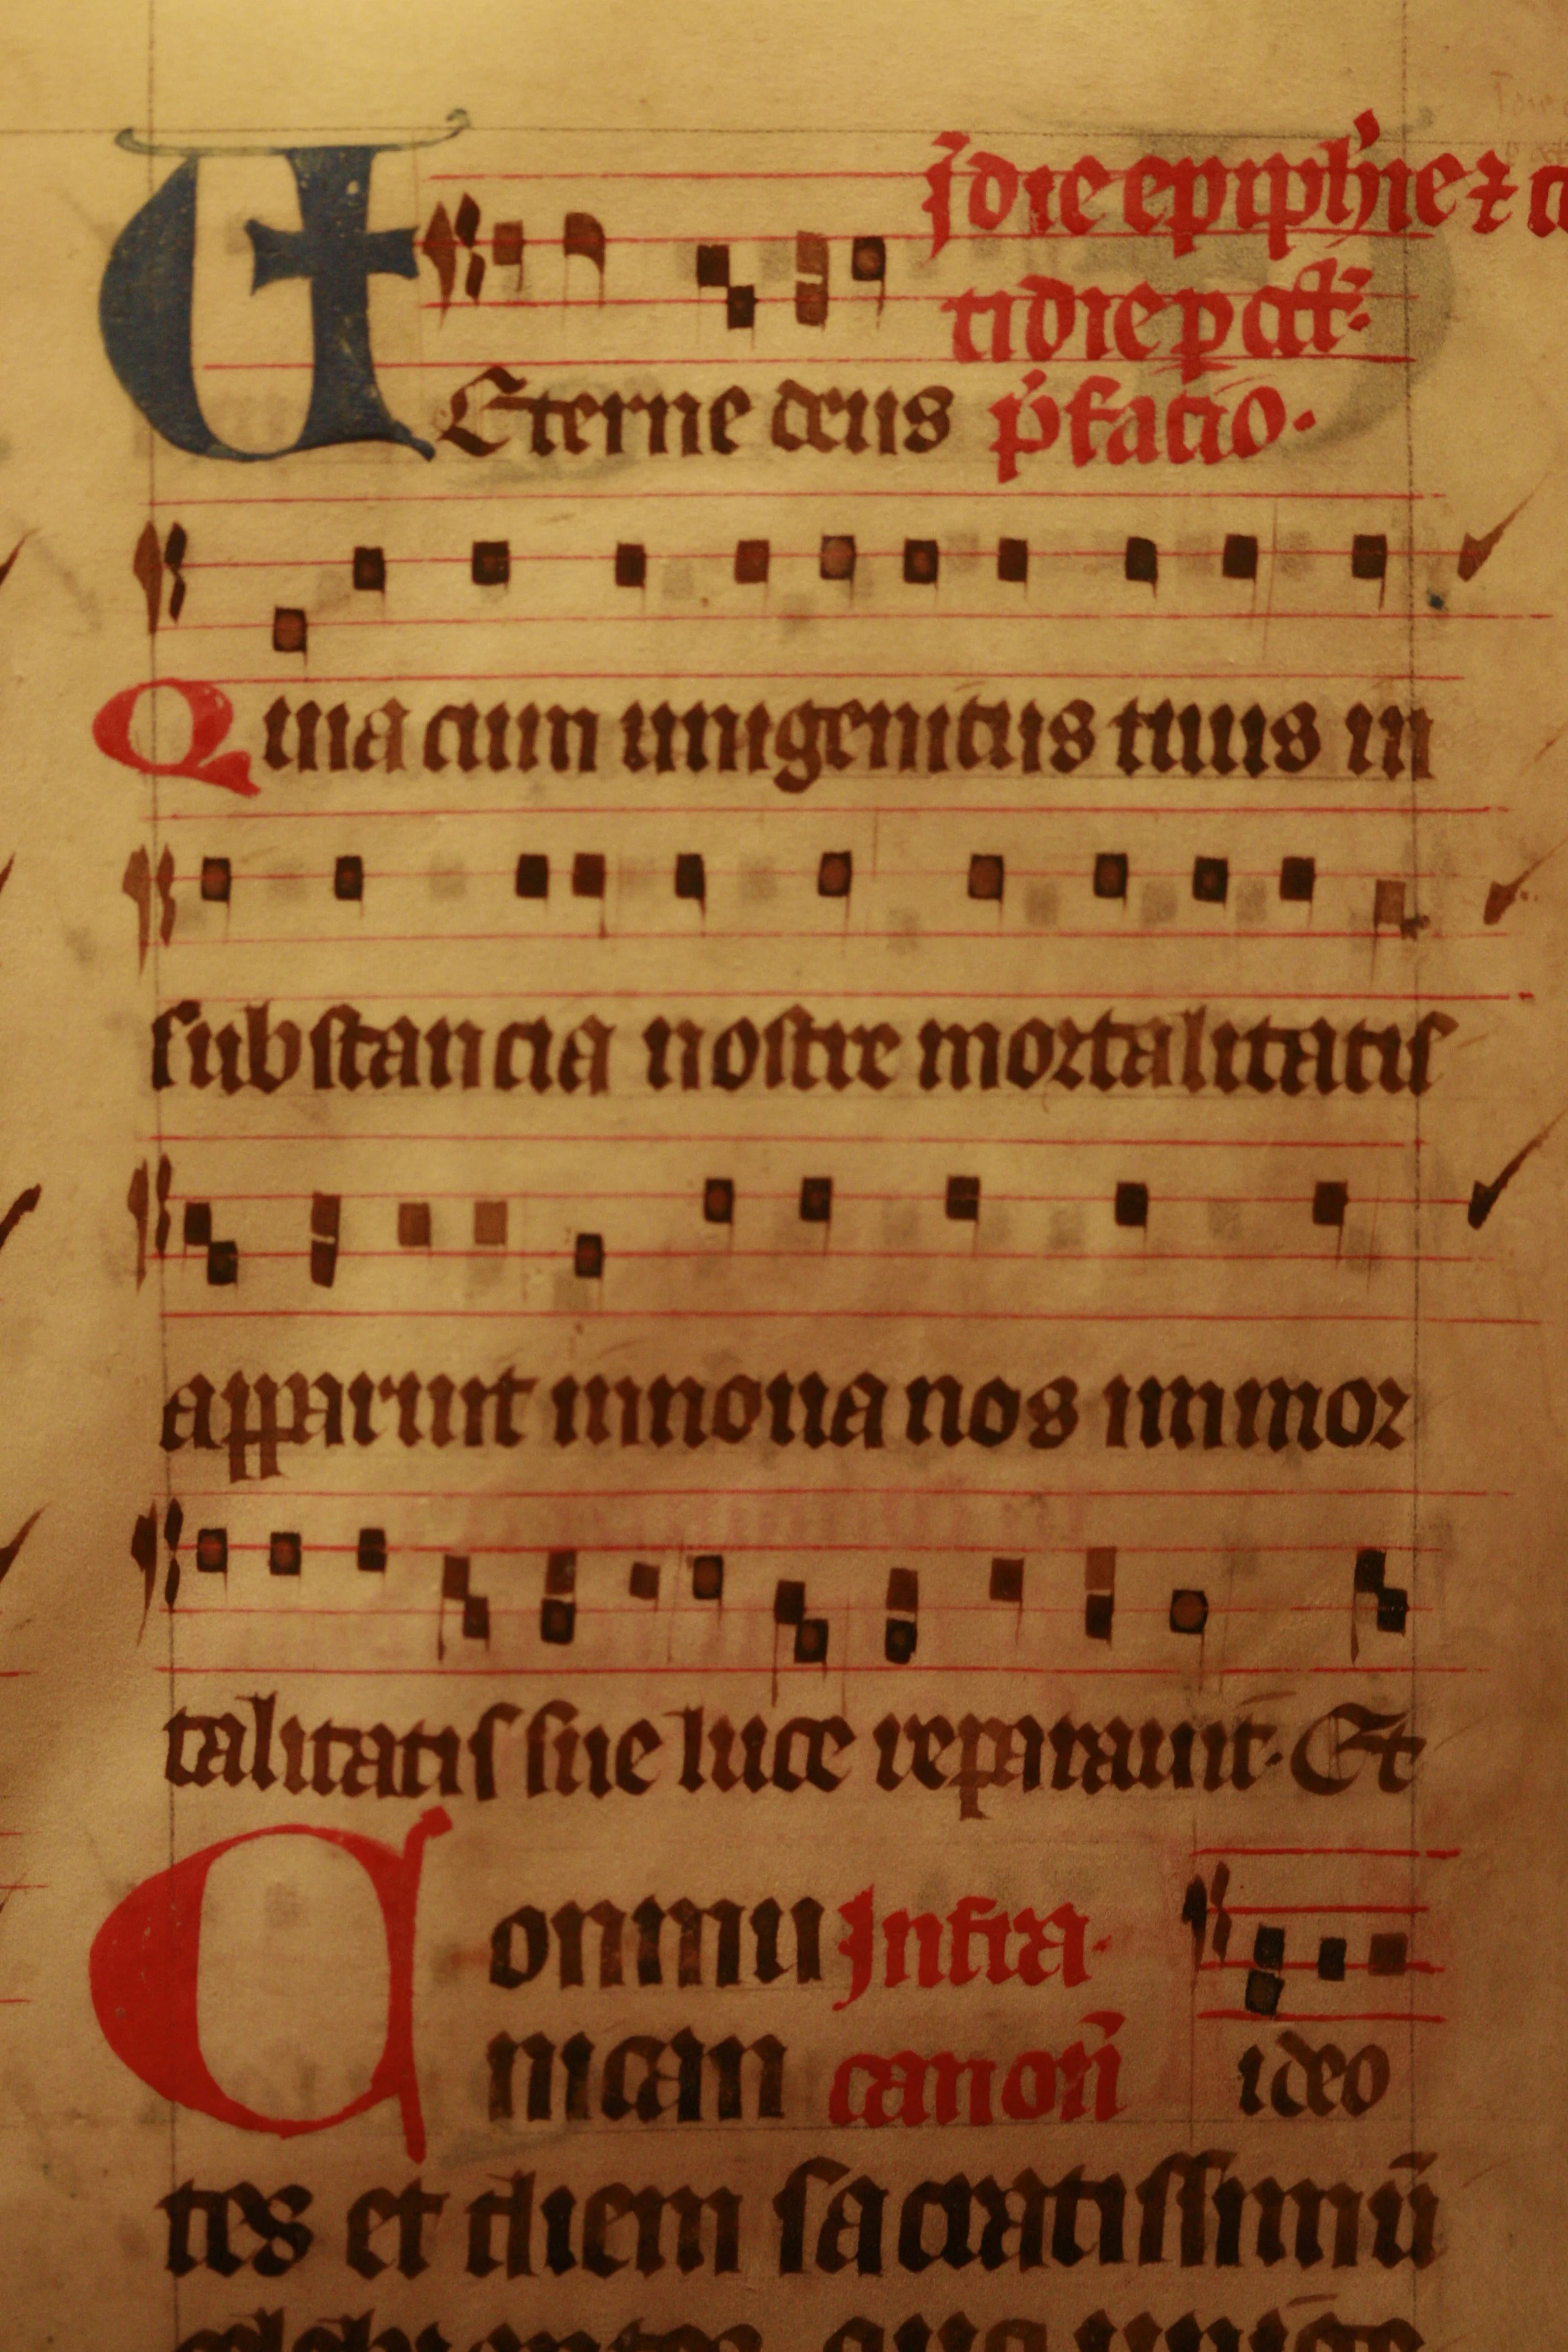 J die epiphīe ⁊ co
tidie p oct̄
E Eterne deus p̄facio.
Quia cum unigenitus tuus in
substancia nostre mortalitatis
apparuit innoua nos immor
talitatis sue luce reparauit. Et
Conmu Infra.
nican canon̄ ideo
tes et diem sacratissimū
celebrantes quo unige